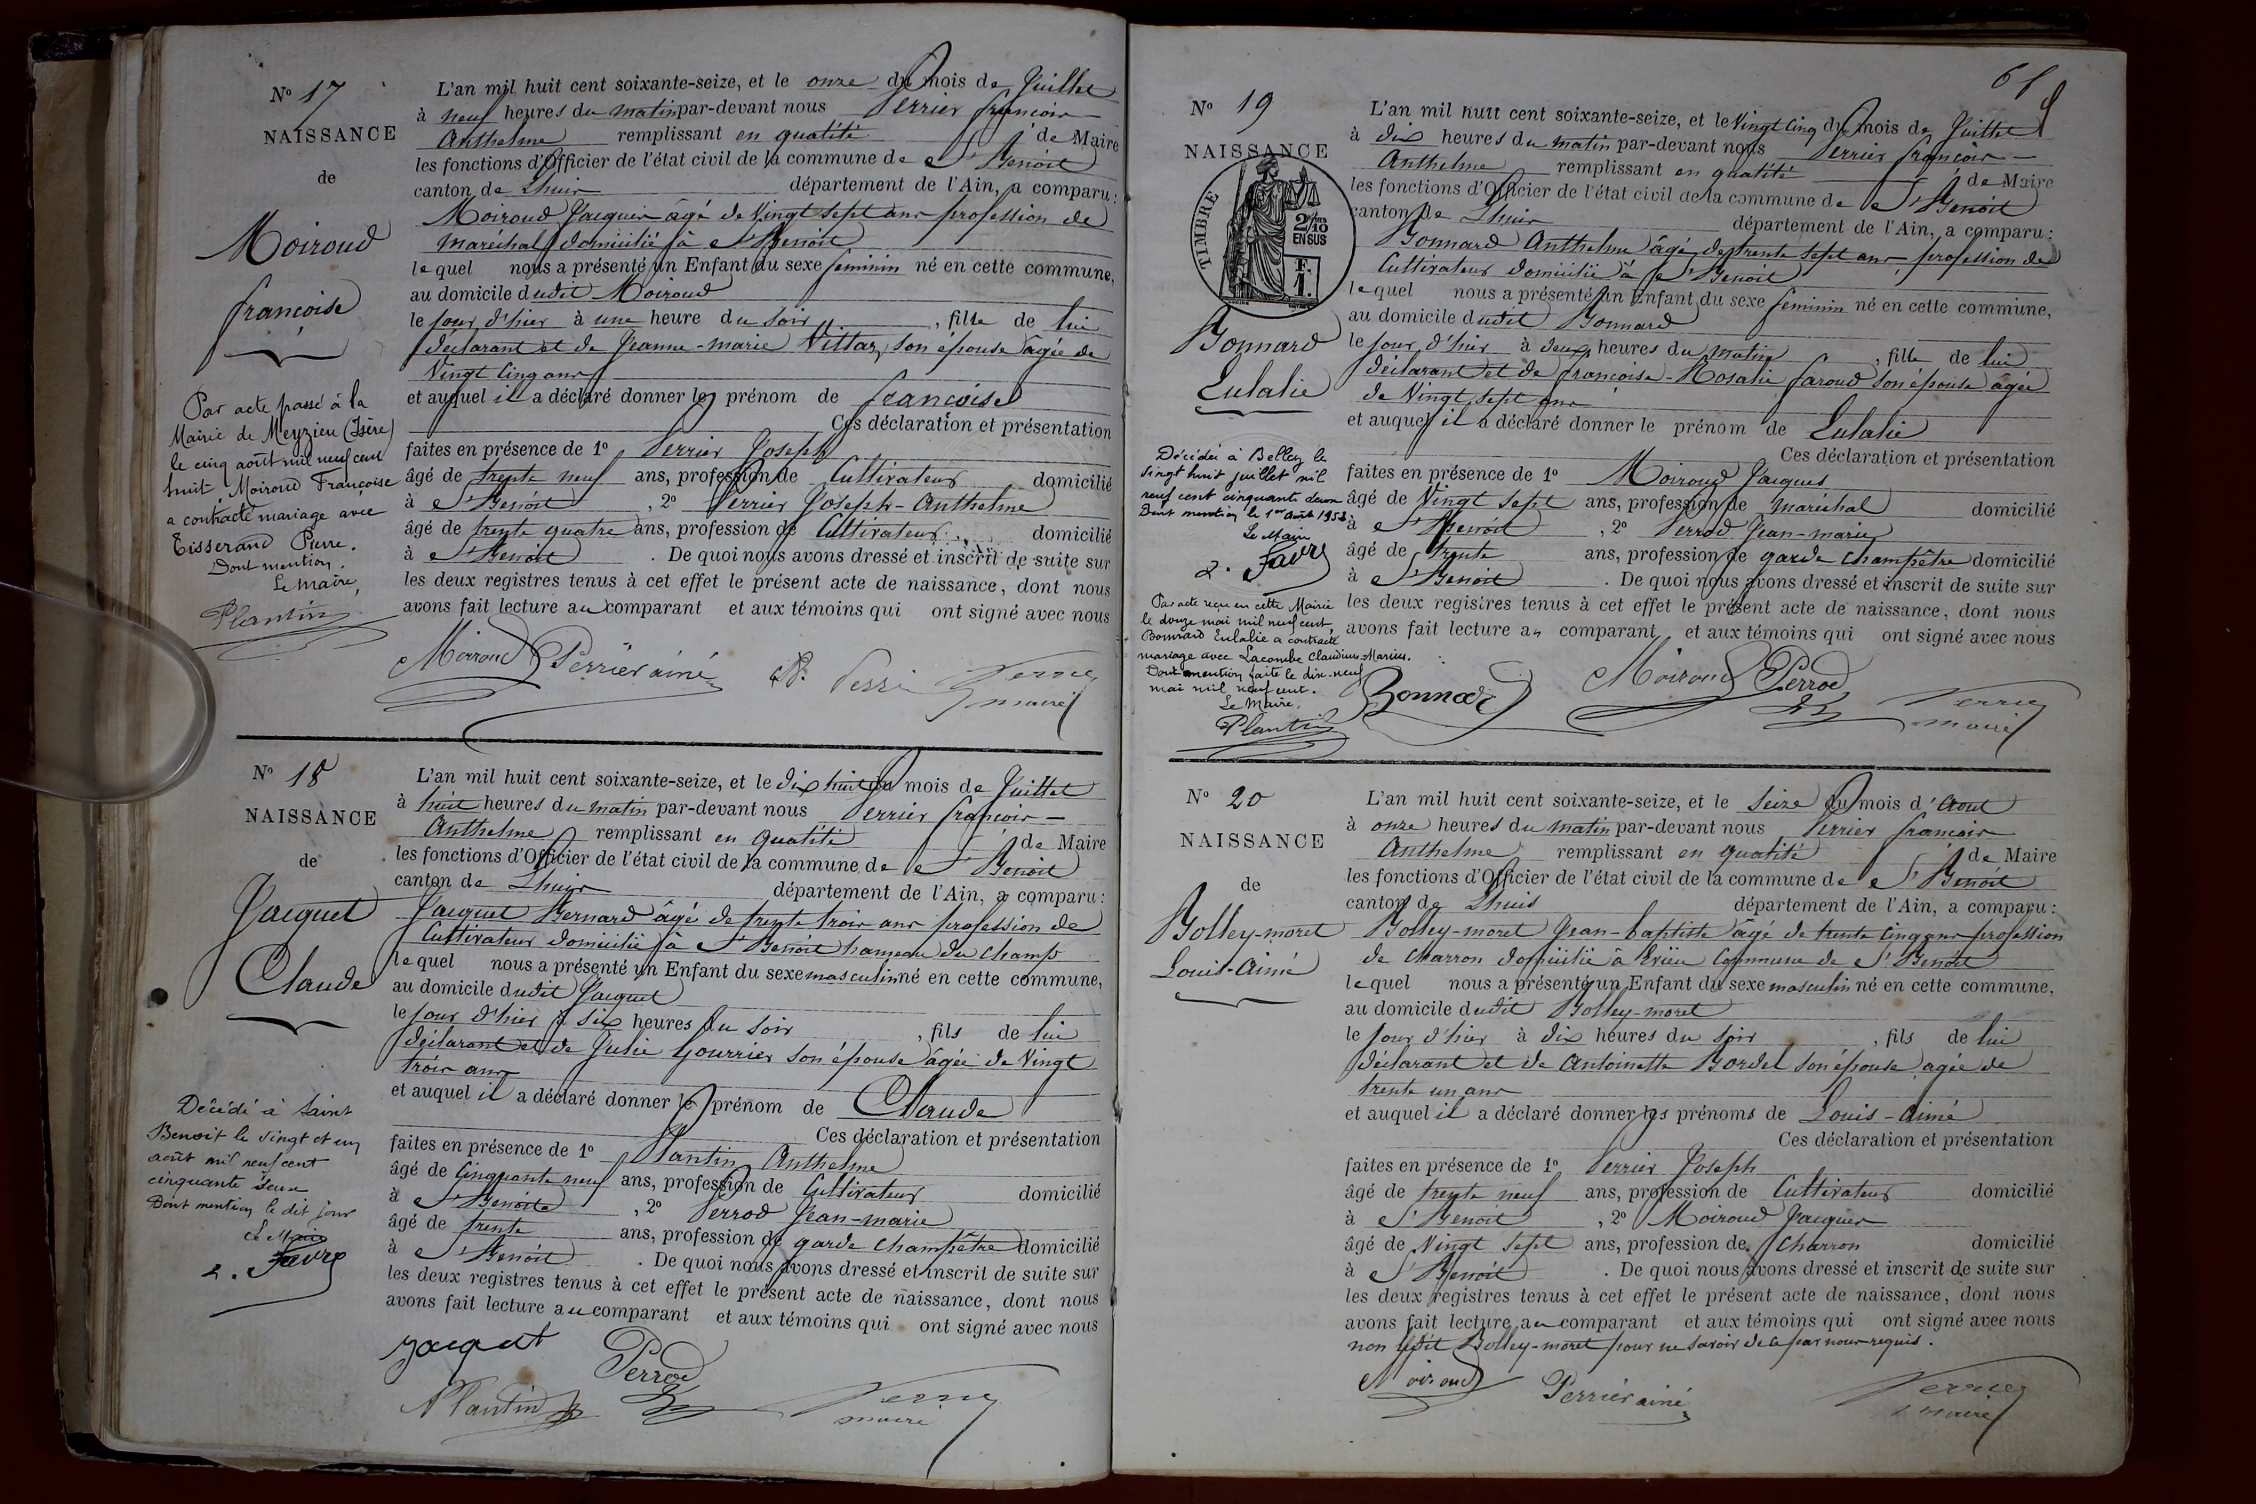 N° 17
NAISSANCE
de
Moiroud
françoise
L'an mil huit cent soixante-seize, et le onze du mois de Juillet
à neuf heures du matin par-devant nous Perrier françois
Anthelme remplissant en qualité de Maire
les fonctions d'Officier de l'état civil de la commune de St Benoit
canton de Lhuis département de l'Ain, a comparu:
Moiroud Jacques âgé de Vingt sept ans profession de
Maréchal domicilié à St Benoit
lequel nous a présenté un Enfant du sexe feminin né en cette commune,
au domicile dudit Moiroud
le jour d'hier à une heure du soir, fille de lui
déclarant et de Jeanne-marie Villaz, son épouse âgée de
Vingt cinq ans
et auquel il a déclaré donner le prénom de françoise
Ces déclaration et présentation
faites en présence de 1° Perrier Joseph
âgé de trente neuf ans, profession de Cultivateur domicilié
à St Benoit, 2° Perrier Joseph-Anthelme
âgé de trente quatre ans, profession de Cultivateur domicilié
à St Benoit. De quoi nous avons dressé et inscrit de suite sur
les deux registres tenus à cet effet le présent acte de naissance, dont nous
avons fait lecture au comparant et aux témoins qui ont signé avec nous
Moiroud Perrier ainé Perrier
maire
Par acte passé à la
Mairie de Meyzieu (Isère)
le cinq août mil neuf cent
huit, Moiroud Françoise
a contracté mariage avec
Tisserand Pierre.
Dont mention.
Le maire,
Plantin
N° 18
NAISSANCE
de
Jacquet
Claude
L'an mil huit cent soixante-seize, et le dix huit du mois de Juillet
à huit heures du matin par-devant nous Perrier françois
Anthelme remplissant en qualité de Maire
les fonctions d'Officier de l'état civil de la commune de St Benoit
canton de Lhuis département de l'Ain, a comparu:
Jacquet Bernard âgé de trente trois ans profession de
Cultivateur domicilié à St Benoit hameau du Champ
lequel nous a présenté un Enfant du sexe masculin né en cette commune,
au domicile dudit Jacquet
le jour d'hier à six heures du soir, fils de lui
déclarant et de Julie Gourrier son épouse âgée de Vingt
trois ans
et auquel il a déclaré donner le prénom de Claude
Ces déclaration et présentation
faites en présence de 1° Plantin Anthelme
âgé de Cinquante neuf ans, profession de Cultivateur domicilié
à St Benoit, 2° Perrod Jean-marie
âgé de trente ans, profession de garde champêtre domicilié
à St Benoit. De quoi nous avons dressé et inscrit de suite sur
les deux registres tenus à cet effet le présent acte de naissance, dont nous
avons fait lecture au comparant et aux témoins qui ont signé avec nous
Jacquet Perrod
Plantin Perrier
maire
Décédé à Saint
Benoit le vingt et un
août mil neuf cent
cinquante deux
Dont mention le dit jour
Le Maire
L. Favre
61
N° 19
NAISSANCE
TIMBRE
2/10
EN SUS
F.
1.
Bonnard
Eulalie
L'an mil huit cent soixante-seize, et le Vingt Cinq du mois de Juillet
à dix heures du matin par-devant nous Perrier françois
Anthelme remplissant en qualité de Maire
les fonctions d'Officier de l'état civil de la commune de St Benoit
canton de Lhuis département de l'Ain, a comparu:
Bonnard Anthelme âgé de trente sept ans, profession de
Cultivateur domicilié à St Benoit
lequel nous a présenté un Enfant du sexe feminin né en cette commune,
au domicile dudit Bonnard
le jour d'hier à deux heures du matin, fille de lui
déclarant et de françoise-Rosalie faroud son épouse âgée
de Vingt sept ans
et auquel il a déclaré donner le prénom de Eulalie
Ces déclaration et présentation
faites en présence de 1° Moiroud Jacques
âgé de Vingt sept ans, profession de maréchal domicilié
à St Benoit, 2° Perrod Jean-marie
âgé de trente ans, profession de garde champêtre domicilié
à St Benoit. De quoi nous avons dressé et inscrit de suite sur
les deux registres tenus à cet effet le présent acte de naissance, dont nous
avons fait lecture au comparant et aux témoins qui ont signé avec nous
Bonnard Moiroud Perrod Perrier
maire
Décédée à Belley le
vingt huit juillet mil
neuf cent cinquante deux
Dont mention le 1er août 1952
Le Maire
L. Favre
Par acte reçu en cette Mairie
le douze mai mil neuf cent,
Bonnard Eulalie a contracté
mariage avec Lacombe Claudius-Marius.
Dont mention faite le dix-neuf
mai mil neuf cent.
Le Maire,
Plantin
N° 20
NAISSANCE
de
Bolley-moret
Louis-Aimé
L'an mil huit cent soixante-seize, et le seize du mois d'Aout
à onze heures du matin par-devant nous Perrier françois
Anthelme remplissant en qualité de Maire
les fonctions d'Officier de l'état civil de la commune de St Benoit
canton de Lhuis département de l'Ain, a comparu:
Bolley-moret Jean-baptiste âgé de trente cinq ans profession
de Charron domicilié à Evieu Commune de St Benoit
lequel nous a présenté un Enfant du sexe masculin né en cette commune,
au domicile dudit Bolley-moret
le jour d'hier à dix heures du soir, fils de lui
déclarant et de Antoinette Bordel son épouse agée de
trente un ans
et auquel il a déclaré donner les prénoms de Louis-Aimé
Ces déclaration et présentation
faites en présence de 1° Perrier Joseph
âgé de trente neuf ans, profession de Cultivateur domicilié
à St Benoit, 2° Moiroud Jacques
âgé de Vingt sept ans, profession de Charron domicilié
à St Benoit. De quoi nous avons dressé et inscrit de suite sur
les deux registres tenus à cet effet le présent acte de naissance, dont nous
avons fait lecture au comparant et aux témoins qui ont signé avec nous
non ledit Bolley-moret pour ne savoir de ce par nous requis.
Moiroud Perrier ainé Perrier
maire